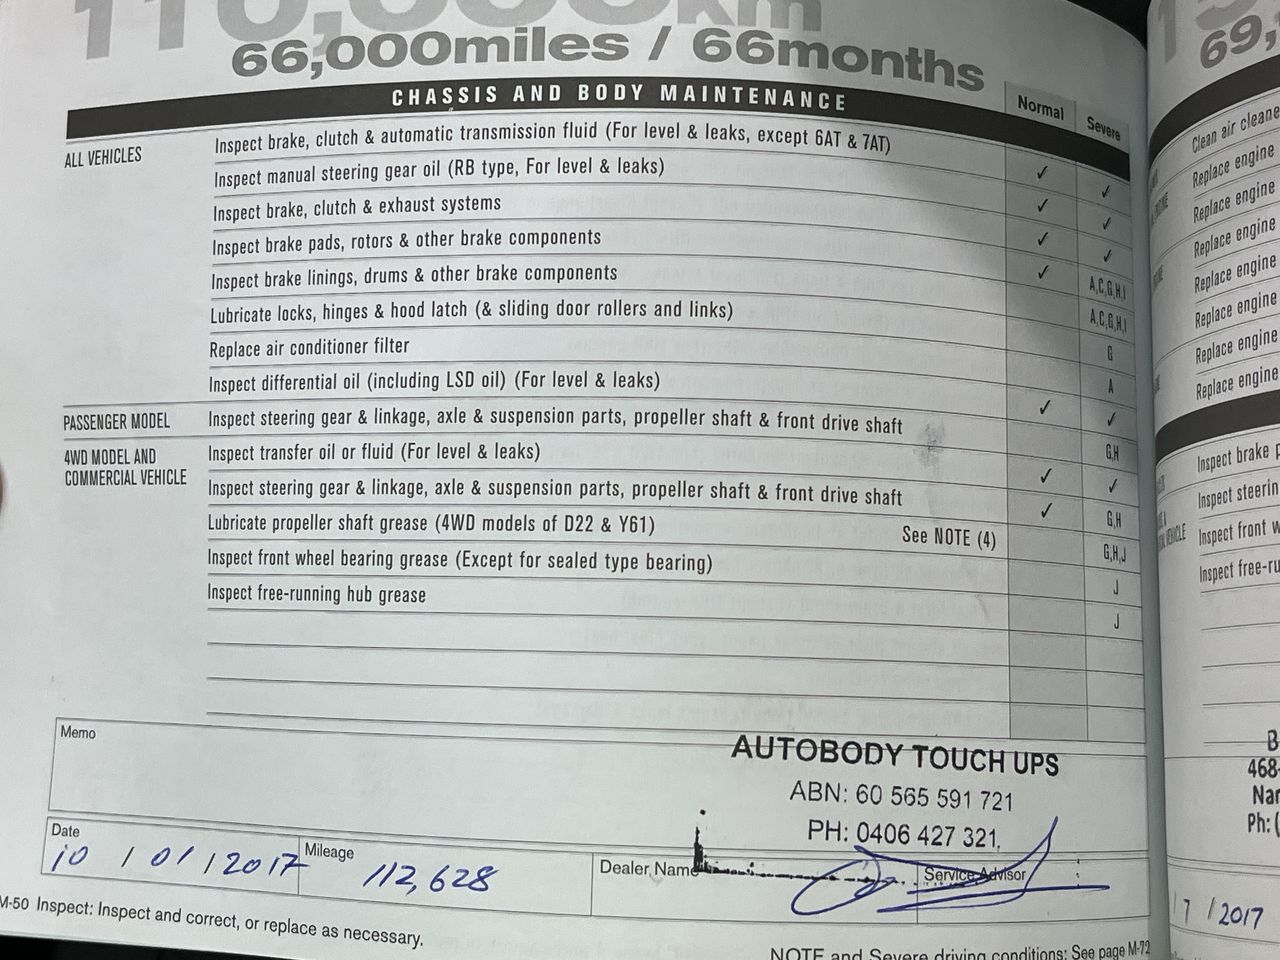 110,000km
66,000miles / 66months
CHASSIS AND BODY MAINTENANCE
Normal
Severe
ALL VEHICLES
Inspect brake, clutch & automatic transmission fluid (For level & leaks, except 6AT & 7AT) ✓ ✓
Inspect manual steering gear oil (RB type, For level & leaks) ✓ ✓
Inspect brake, clutch & exhaust systems ✓ ✓
Inspect brake pads, rotors & other brake components ✓ A,C,G,H,I
Inspect brake linings, drums & other brake components A,C,G,H,I
Lubricate locks, hinges & hood latch (& sliding door rollers and links) G
Replace air conditioner filter A
Inspect differential oil (including LSD oil) (For level & leaks) ✓ ✓
PASSENGER MODEL
Inspect steering gear & linkage, axle & suspension parts, propeller shaft & front drive shaft G,H
4WD MODEL AND
COMMERCIAL VEHICLE
Inspect transfer oil or fluid (For level & leaks) ✓ ✓
Inspect steering gear & linkage, axle & suspension parts, propeller shaft & front drive shaft ✓ G,H
Lubricate propeller shaft grease (4WD models of D22 & Y61) See NOTE (4) G,H,J
Inspect front wheel bearing grease (Except for sealed type bearing) J
Inspect free-running hub grease J
Memo
AUTOBODY TOUCH UPS
ABN: 60 565 591 721
PH: 0406 427 321.
Date
10 / 01 / 2017
Mileage
112,628
Dealer Name
Service Advisor
M-50 Inspect: Inspect and correct, or replace as necessary.
NOTE and Severe driving conditions: See page M-72
69,
Clean air cleane
Replace engine
Replace engine
Replace engine
Replace engine
Replace engine
Replace engine
Replace engine
Inspect brake p
Inspect steerin
Inspect front w
Inspect free-ru
B
468-
Nar
Ph: (
7 / 2017